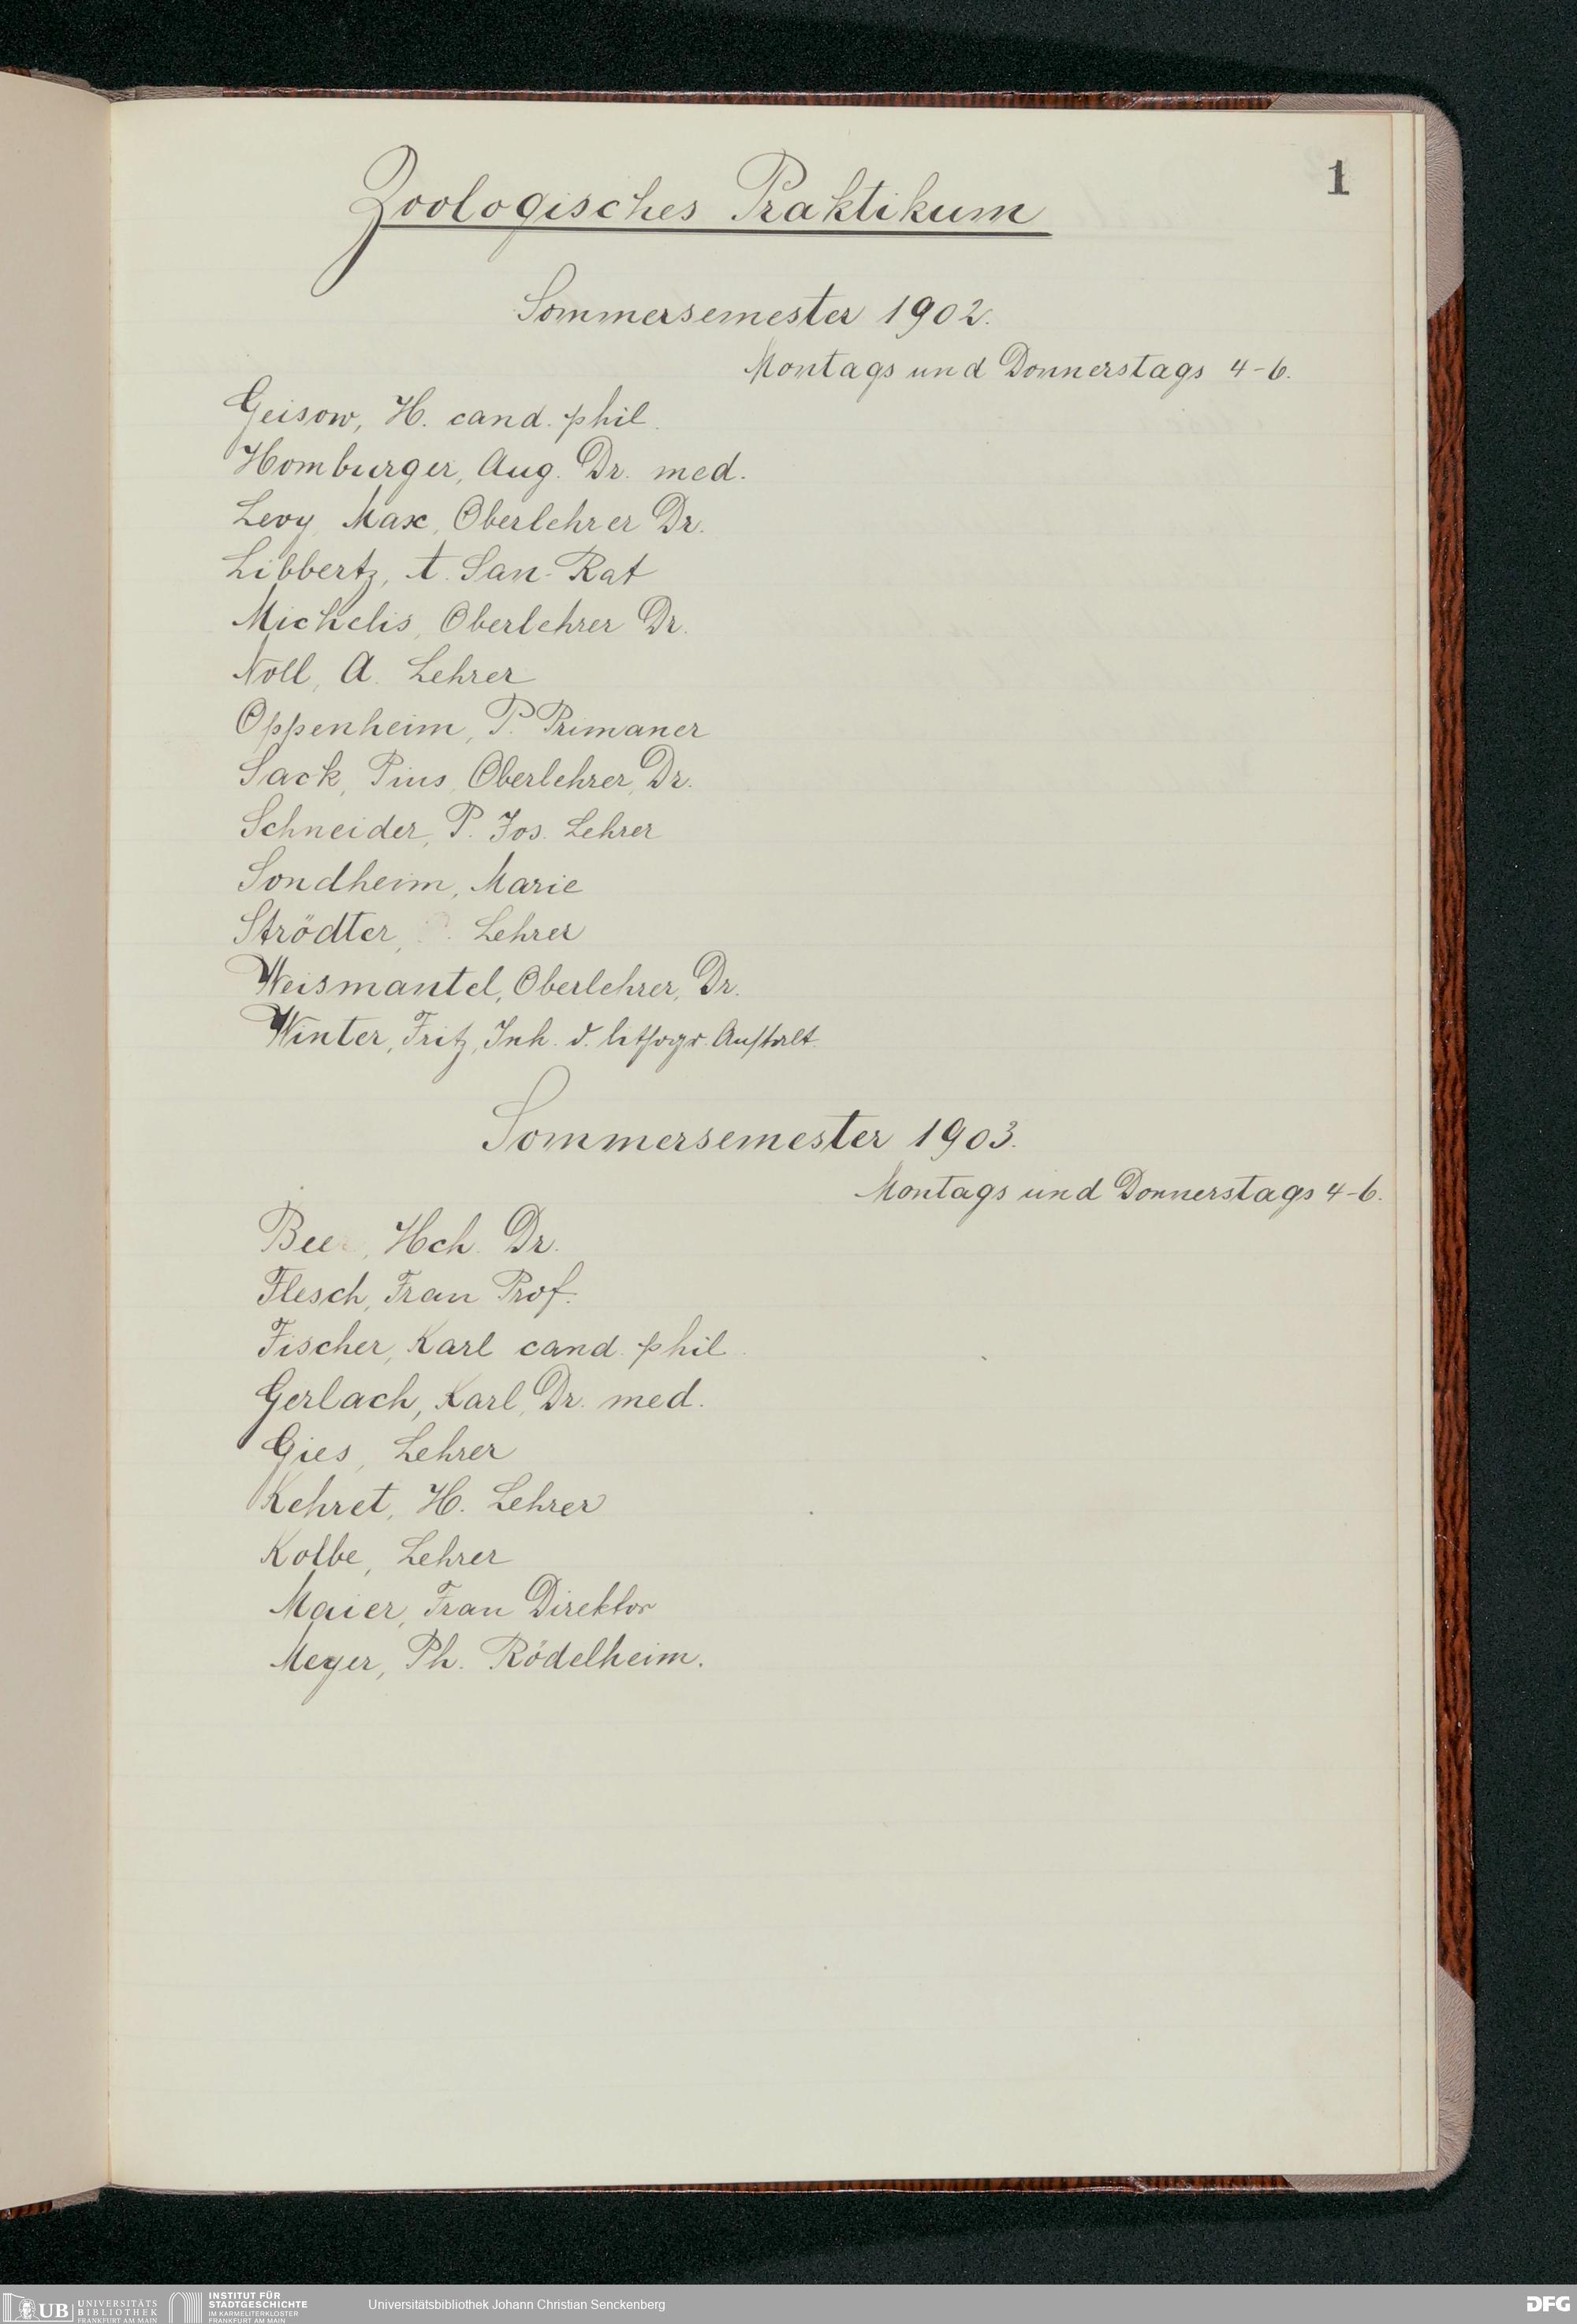 1
Zoologisches Praktikum
Sommersemester 1902.
Montags und Donnerstags 4-6.
Geisow, H. cand. phil.
Homburger, Aug. Dr. med.
Levy, Max, Oberlehrer Dr.
Libbertz, A. San-Rat
Michelis, Oberlehrer Dr.
Noll, A. Lehrer
Oppenheim, P. Primaner
Sack, Pius, Oberlehrer, Dr.
Schneider, P. Jos. Lehrer
Sondheim, Marie
Strödter, Lehrer
Weismantel, Oberlehrer, Dr.
Winter, Fritz, Inh. d. lithogr. Anstalt.
Sommersemester 1903.
Montags und Donnerstags 4-6.
Hch. Dr.
Flesch, Frau Prof.
Fischer, Karl cand. phil.
Gerlach, Karl, Dr. med.
Gies, Lehrer
Kehret, H. Lehrer
Kolbe, Lehrer
Maier, Frau Direktor
Meyer, Ph. Rödelheim.
UB UNIVERSITÄTS BIBLIOTHEK FRANKFURT AM MAIN
INSTITUT FÜR STADTGESCHICHTE IM KARMELITERKLOSTER FRANKFURT AM MAIN
Universitätsbibliothek Johann Christian Senckenberg
DFG